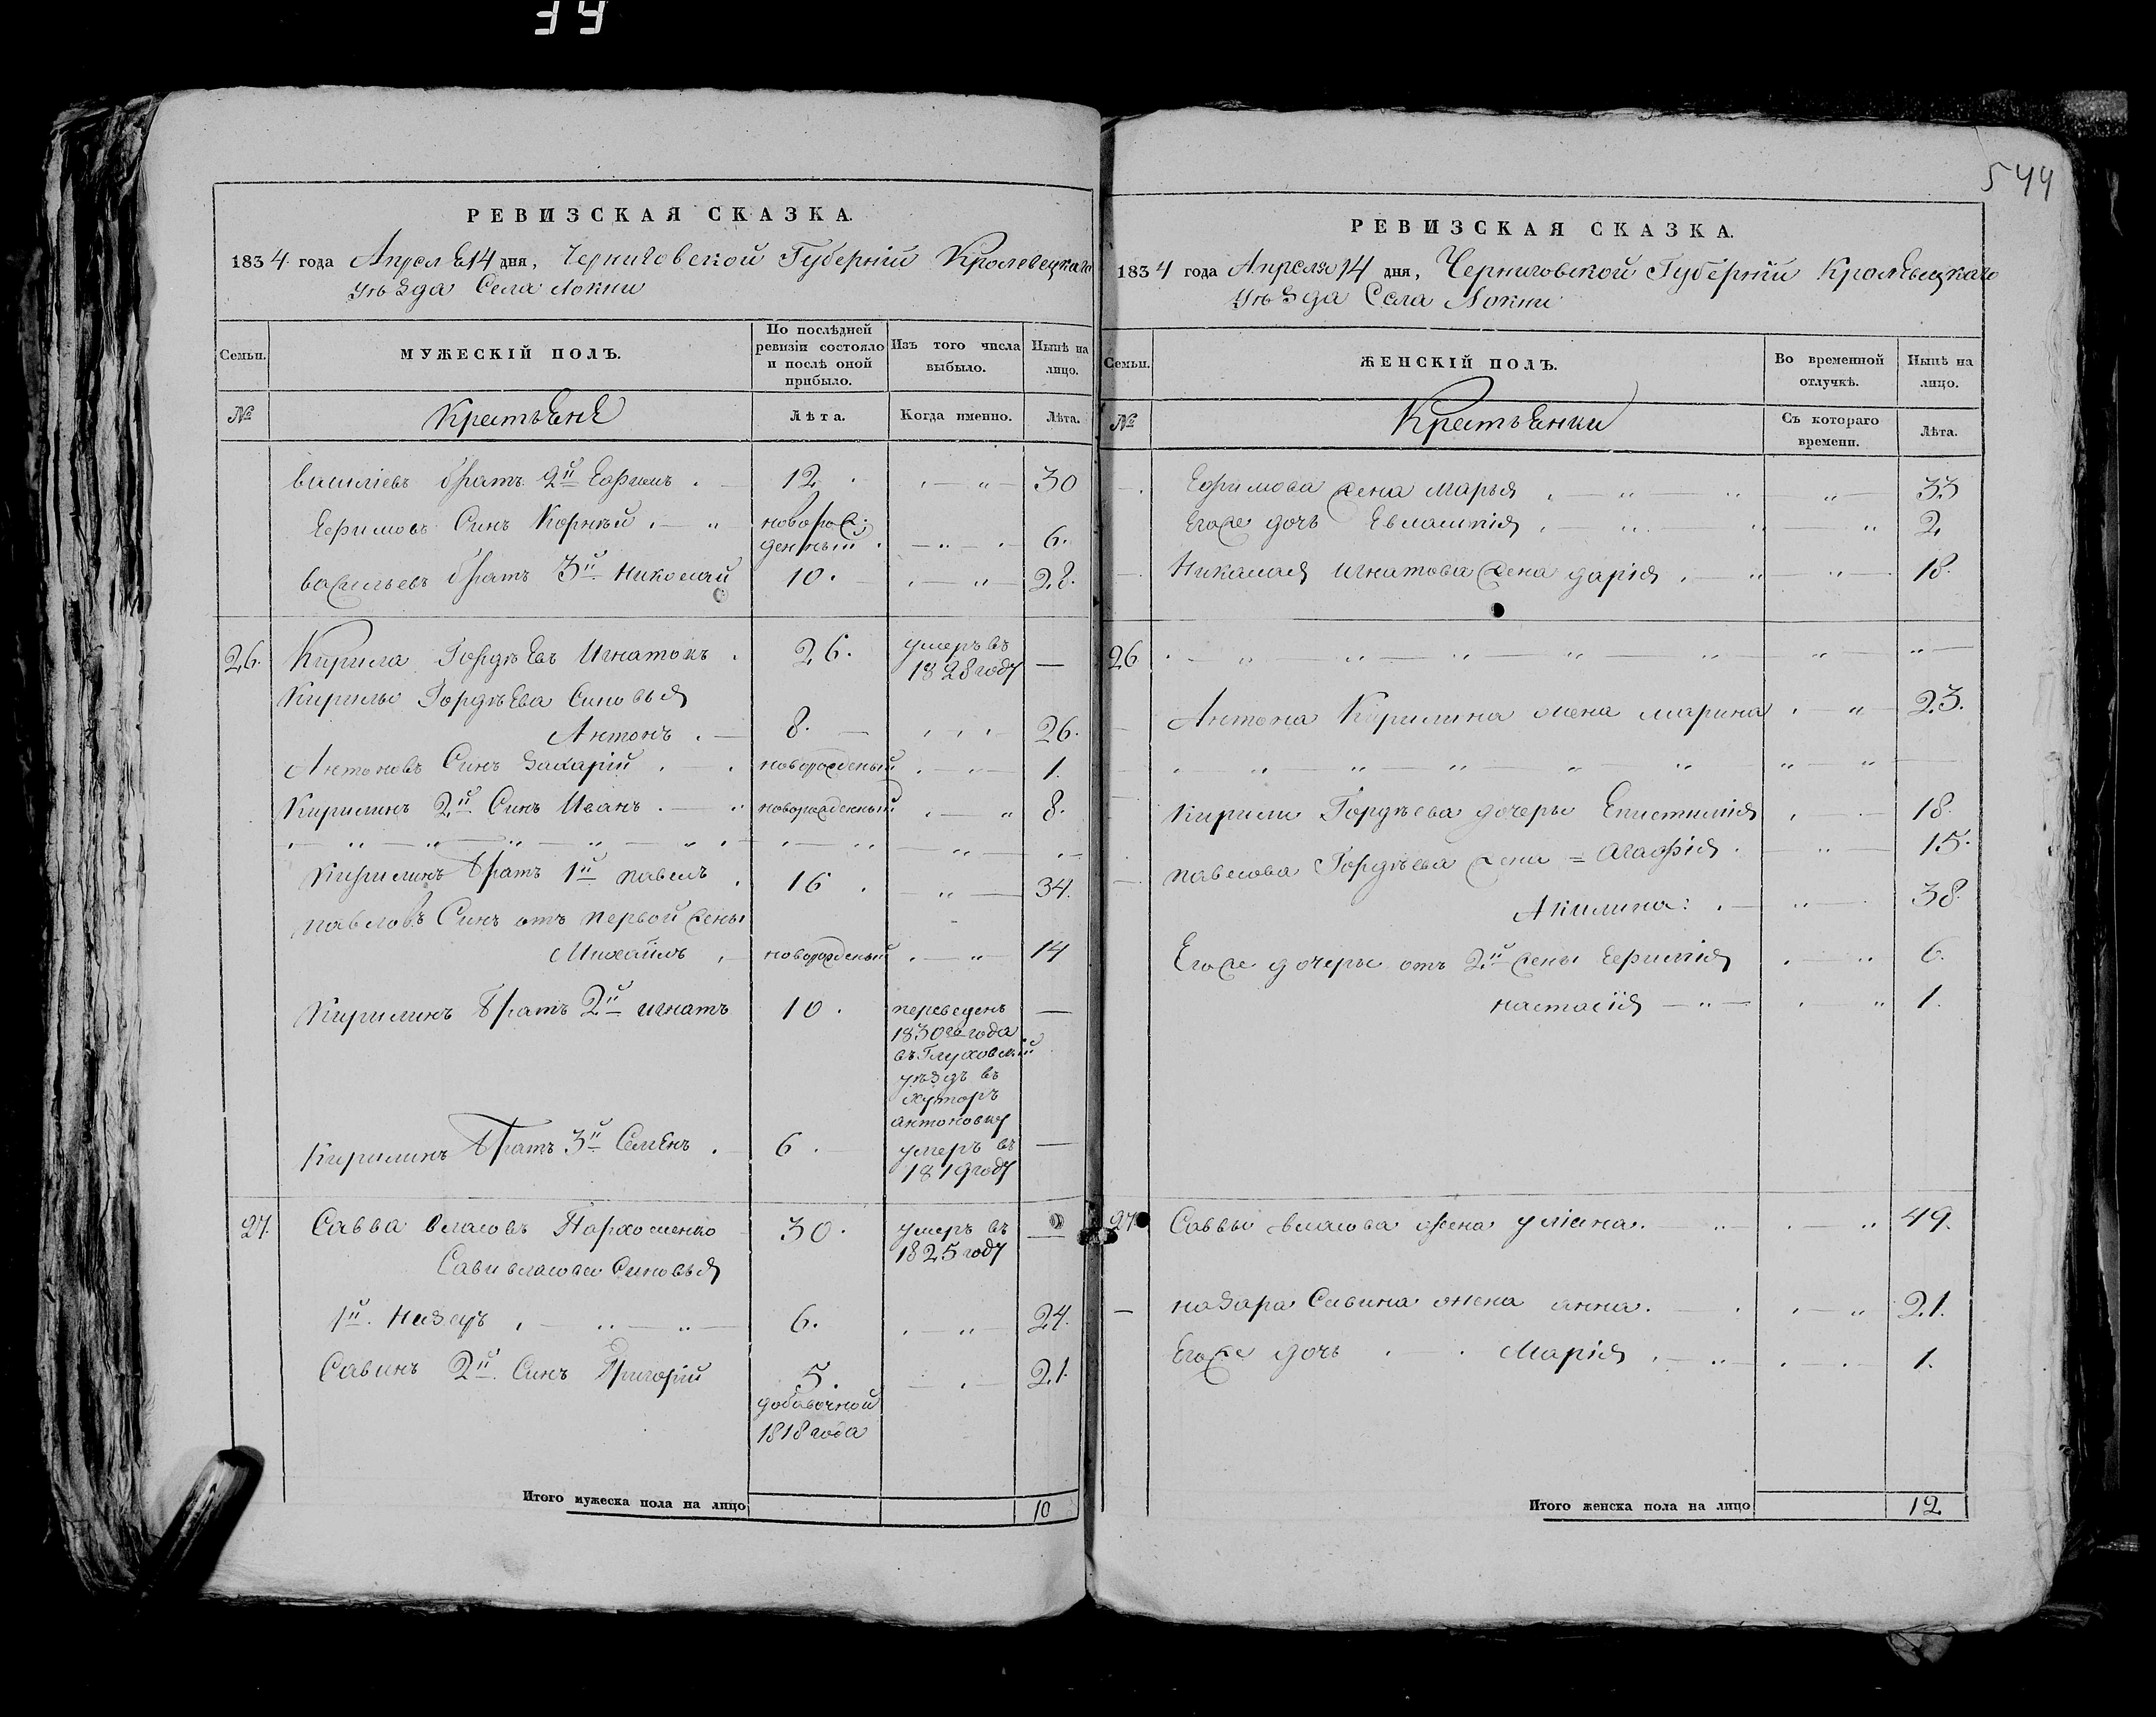 34
РЕВИЗСКАЯ СКАЗКА.
1834 года Апреля 14 дня, Черниговской Губернїи Кролевецкаго
уѣзда Села Локни
Семьи.
МУЖЕСКІЙ ПОЛЪ.
По послѣдней ревизіи состояло и послѣ оной прибыло.
Изъ того числа выбыло.
Нынѣ на лицо.
№
Крестьяне
Лѣта.
Когда именно.
Лѣта.
Василіевъ братъ 2й Ефимъ 12 30
Ефимовъ Синъ Корнѣй новорожденный 6.
Васильевъ братъ 3й Николай 10. 28.
26. Кирила Гордѣевъ Игнатокъ 26. умеръ въ 1828 году —
Кирилы Гордѣева Синовья
Антонъ 8. 26.
Антоновъ Синъ Захарїй новорожденый 1.
Кирилинъ 2й Синъ Иванъ новорожденный 8.
Кирилинъ братъ 1й павелъ 16 34.
павловъ Синъ отъ первой жены
Михайлъ новорожденый 14
Кирилинъ братъ 2й игнатъ 10. переведенъ —
1830го года
въ Глуховскїй
уѣздъ въ
хуторъ
антоновку
Кирилинъ братъ 3й Семенъ 6. умеръ въ —
1819 году
27. Савва Власовъ Пархоменко 30. умеръ въ —
1825 году
Сави власова Синовья
1й. Назаръ 6. 24.
Савинъ 2й Синъ Григорїй 5. 21.
добавочной
1818 года
Итого мужеска пола на лицо 10
544
РЕВИЗСКАЯ СКАЗКА.
1834 года Апреля 14 дня, Черниговской Губернїи Кролевецкаго
уѣзда Села Локни
Семьи.
ЖЕНСКІЙ ПОЛЪ.
Во временной отлучкѣ.
Нынѣ на лицо.
№
Крестьянки
Съ котораго времени.
Лѣта.
Ефимова жена марья 33
Егоже дочь Евлампїя 2
Николая игнатова жена дарїя 18.
26
Антона Кирилина жена марина 23.
Кирили Гордѣева дочеры Епистимїя 18.
= Агафїя 15.
павлова Гордѣева жена
Акилина: 38.
Егоже дочеры отъ 2й жены Ефимїя 6.
настасїя 1.
27 Саввы власова жена улїана. 49.
назара Савина жена анна. 21.
Егоже дочь Марїя 1.
Итого женска пола на лицо 12